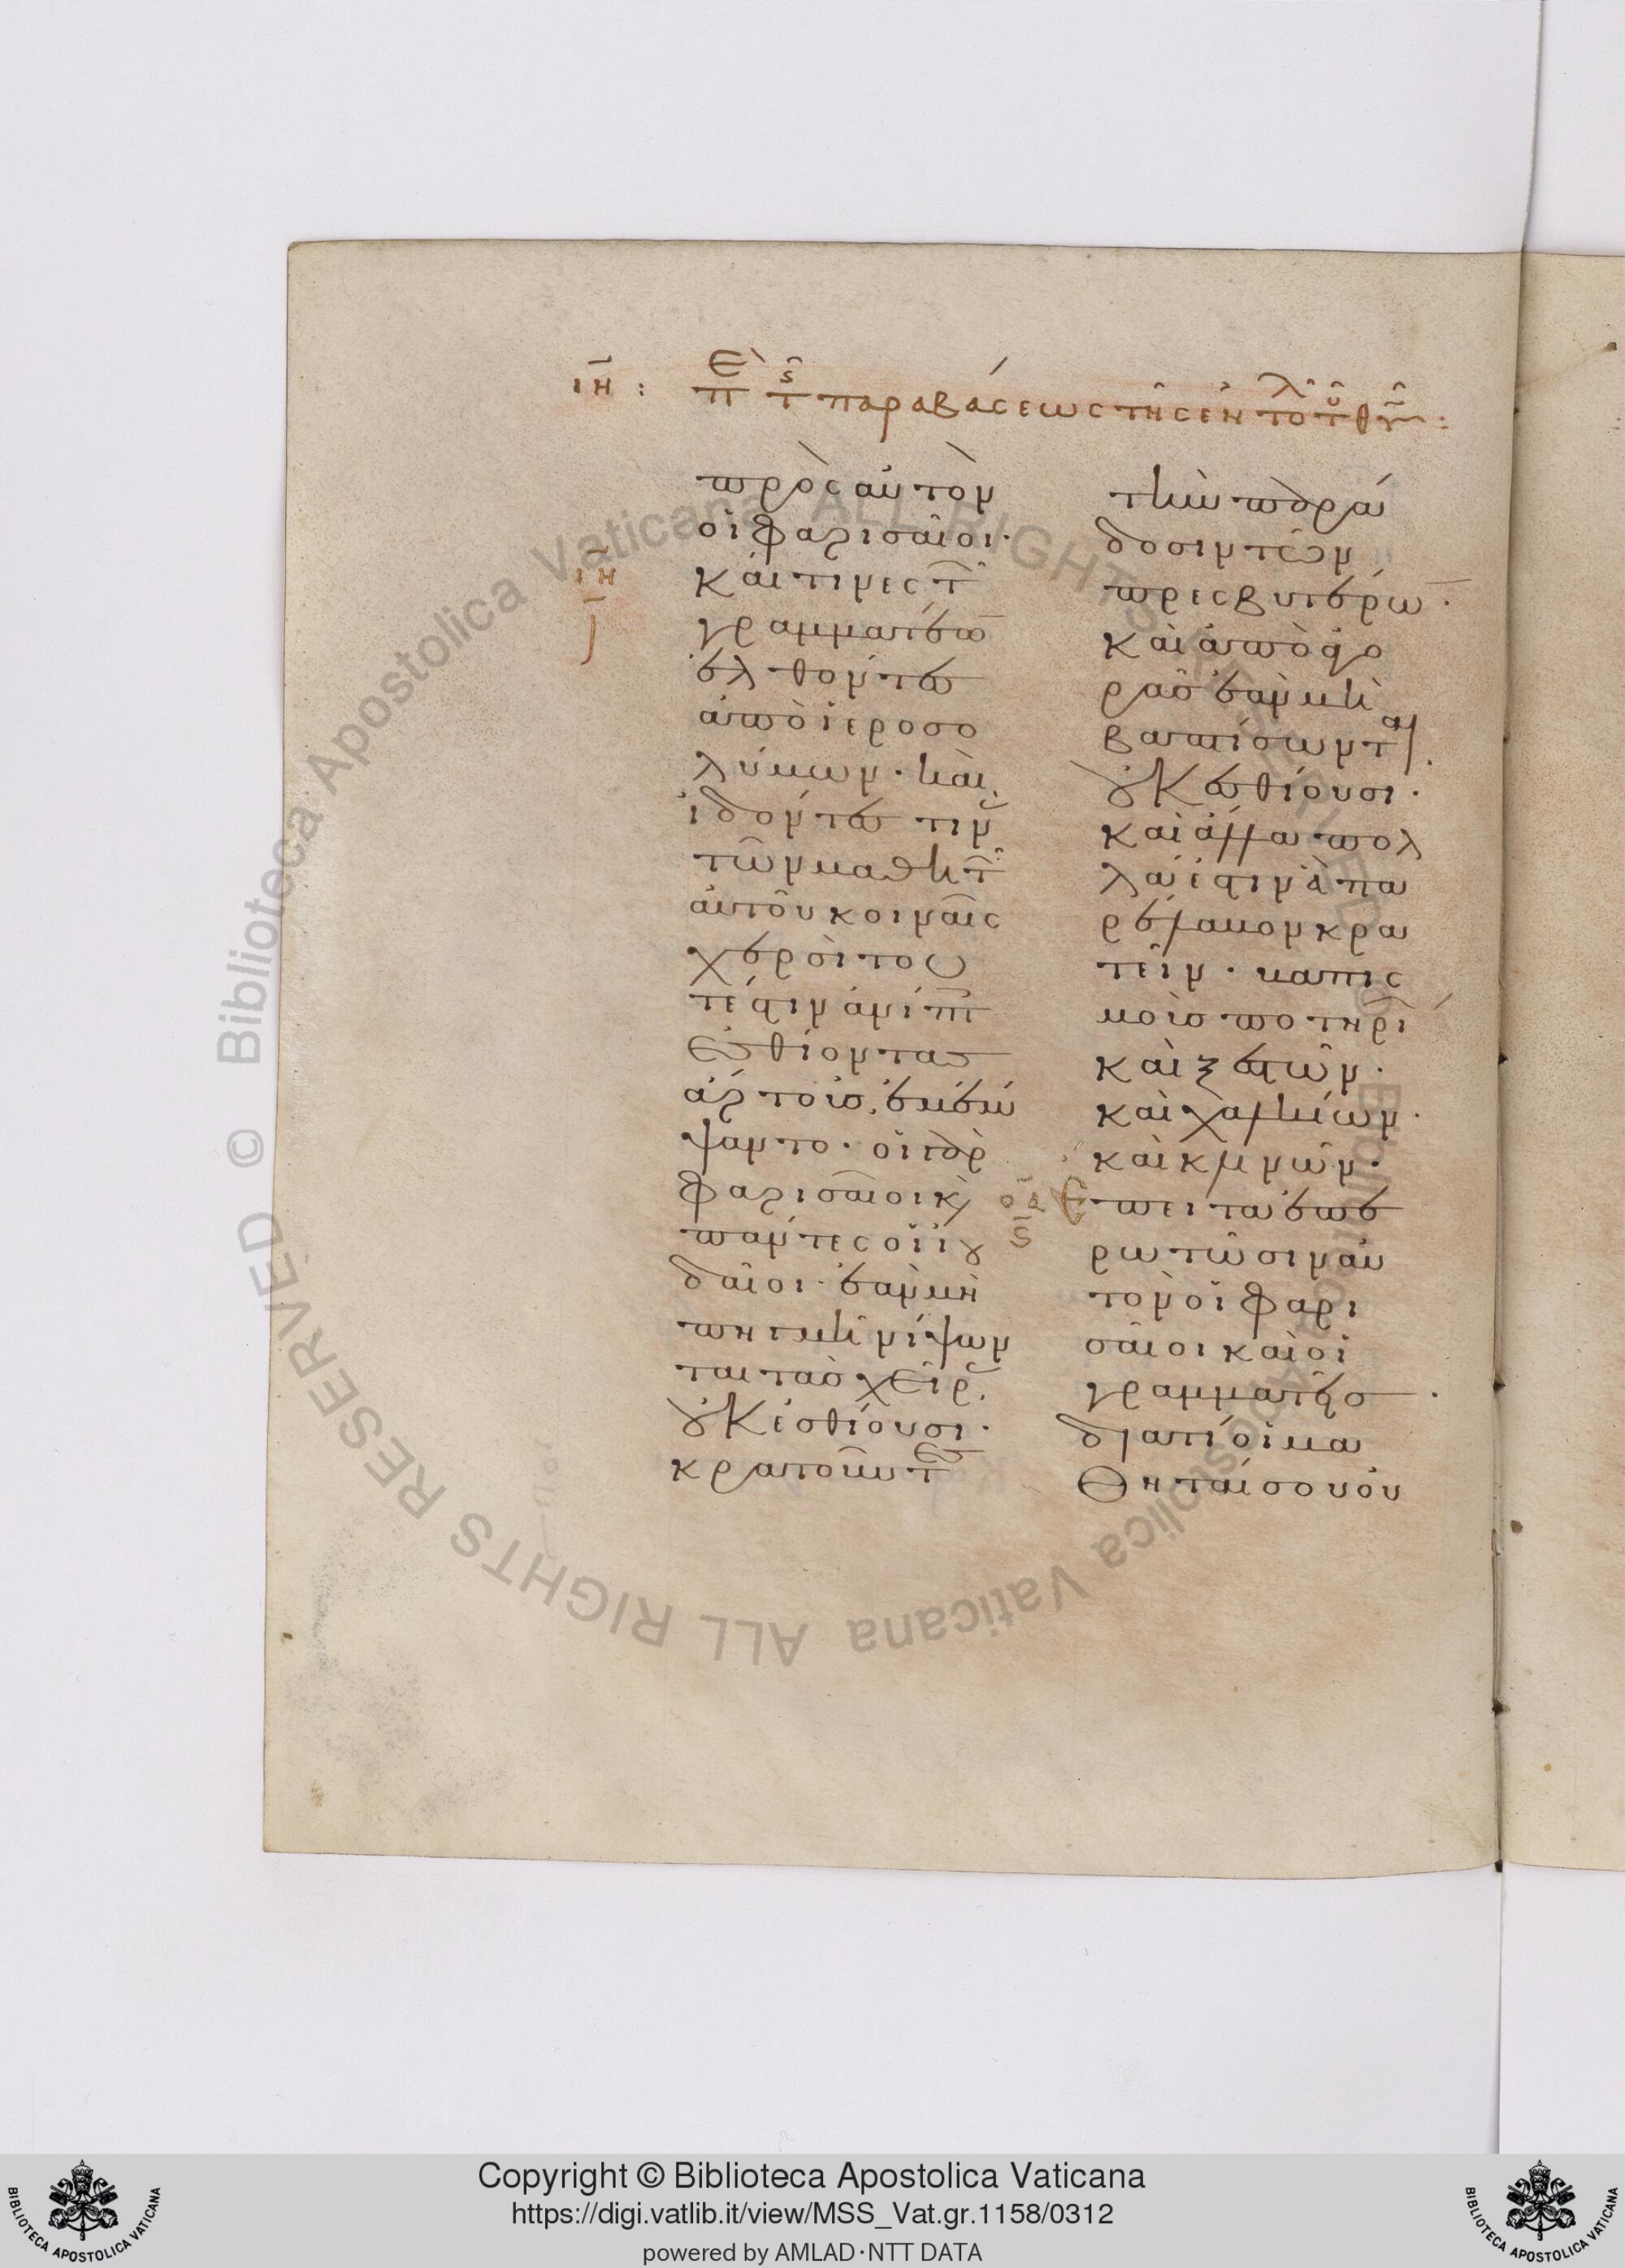 ιη: Περὶ τ παραβάσεως τῆς ἐντολ τοῦ θυ:
πρὸς αὐτὸν
οἱ φαρισαῖοι·
ιη
καί τινες τ
γραμματέω
ἐλθόντες
ἀπὸ ἱεροσο
λύμων· καὶ
ἰδόντες τιν
τῶν μαθητ
αὐτοῦ κοιναῖς
χερσὶ τοῦ
τέστιν ἀνίπτ
ἐσθίοντας
ἄρτους, ἐμέμ
ψαντο· οἱ γὰρ
φαρισαῖοι κ
πάντες οἱ ἰου
δαῖοι· ἐὰν μὴ
πυγμῇ νίψων
ται τὰς χεῖρ
οὐκ ἐσθίουσι·
κρατοῦντες
τὴν παρά
δοσιν τῶν
πρεσβυτέρω·
καὶ ἀπὸ ἀγο
ρᾶς ἐὰν μὴ
βαπτίσωνται
οὐκ ἐσθίουσι·
καὶ ἄλλα πολ
λά ἐστιν ἃ πα
ρέλαβον κρα
τεῖν· βαπτισ
μοὺς ποτηρί
καὶ ξεστῶν·
καὶ χαλκίων·
καὶ κλινῶν·
οα
ς
Ἔπειτα ἐπε
ρωτῶσιν αὐ
τὸν οἱ φαρι
σαῖοι καὶ οἱ
γραμματεῖς·
διατί οἱ μα
θηταί σου οὐ
Copyright © Biblioteca Apostolica Vaticana
https://digi.vatlib.it/view/MSS_Vat.gr.1158/0312
powered by AMLAD·NTT DATA
BIBLIOTECA APOSTOLICA VATICANA
BIBLIOTECA APOSTOLICA VATICANA
© Biblioteca Apostolica Vaticana ALL RIGHTS RESERVED © Biblioteca Apostolica Vaticana ALL RIGHTS RESERVED